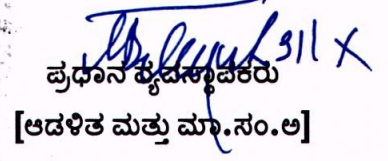 ಪ್ರಧಾನ ವ್ಯವಸ್ಥಾಪಕರು
[ಆಡಳಿತ ಮತ್ತು ಮಾ.ಸಂ.ಅ]